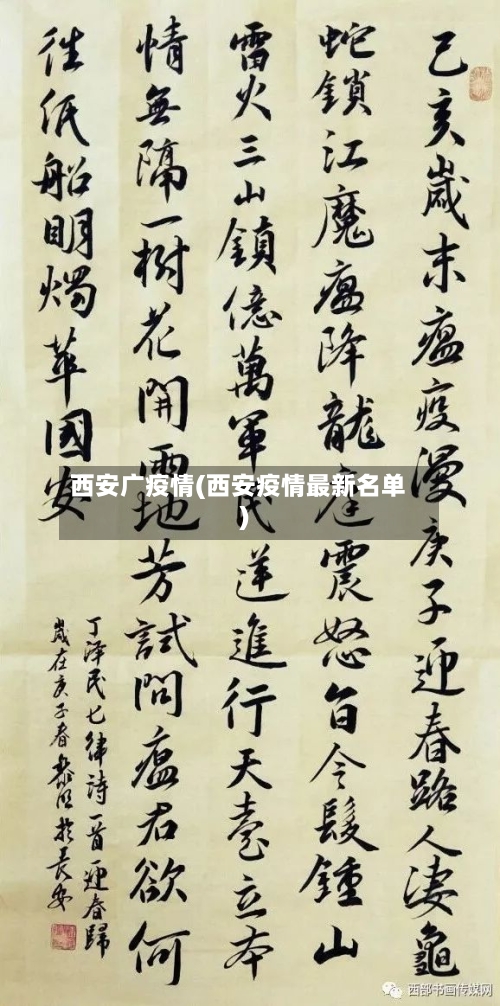 己亥歲末瘟疫漫庚子迎春路人凄龜
蛇鎖江魔瘟降龍庭震怒旨令髮鍾山
雷火三山鎮億萬軍民逆進行天臺立本
情無隔一樹花開兩地芳試問瘟君欲何
往紙船明燭華國安
丁澤民七律詩一首迎春歸
歲在庚子春於長安
西安广疫情(西安疫情最新名单
)
西部书画传媒网